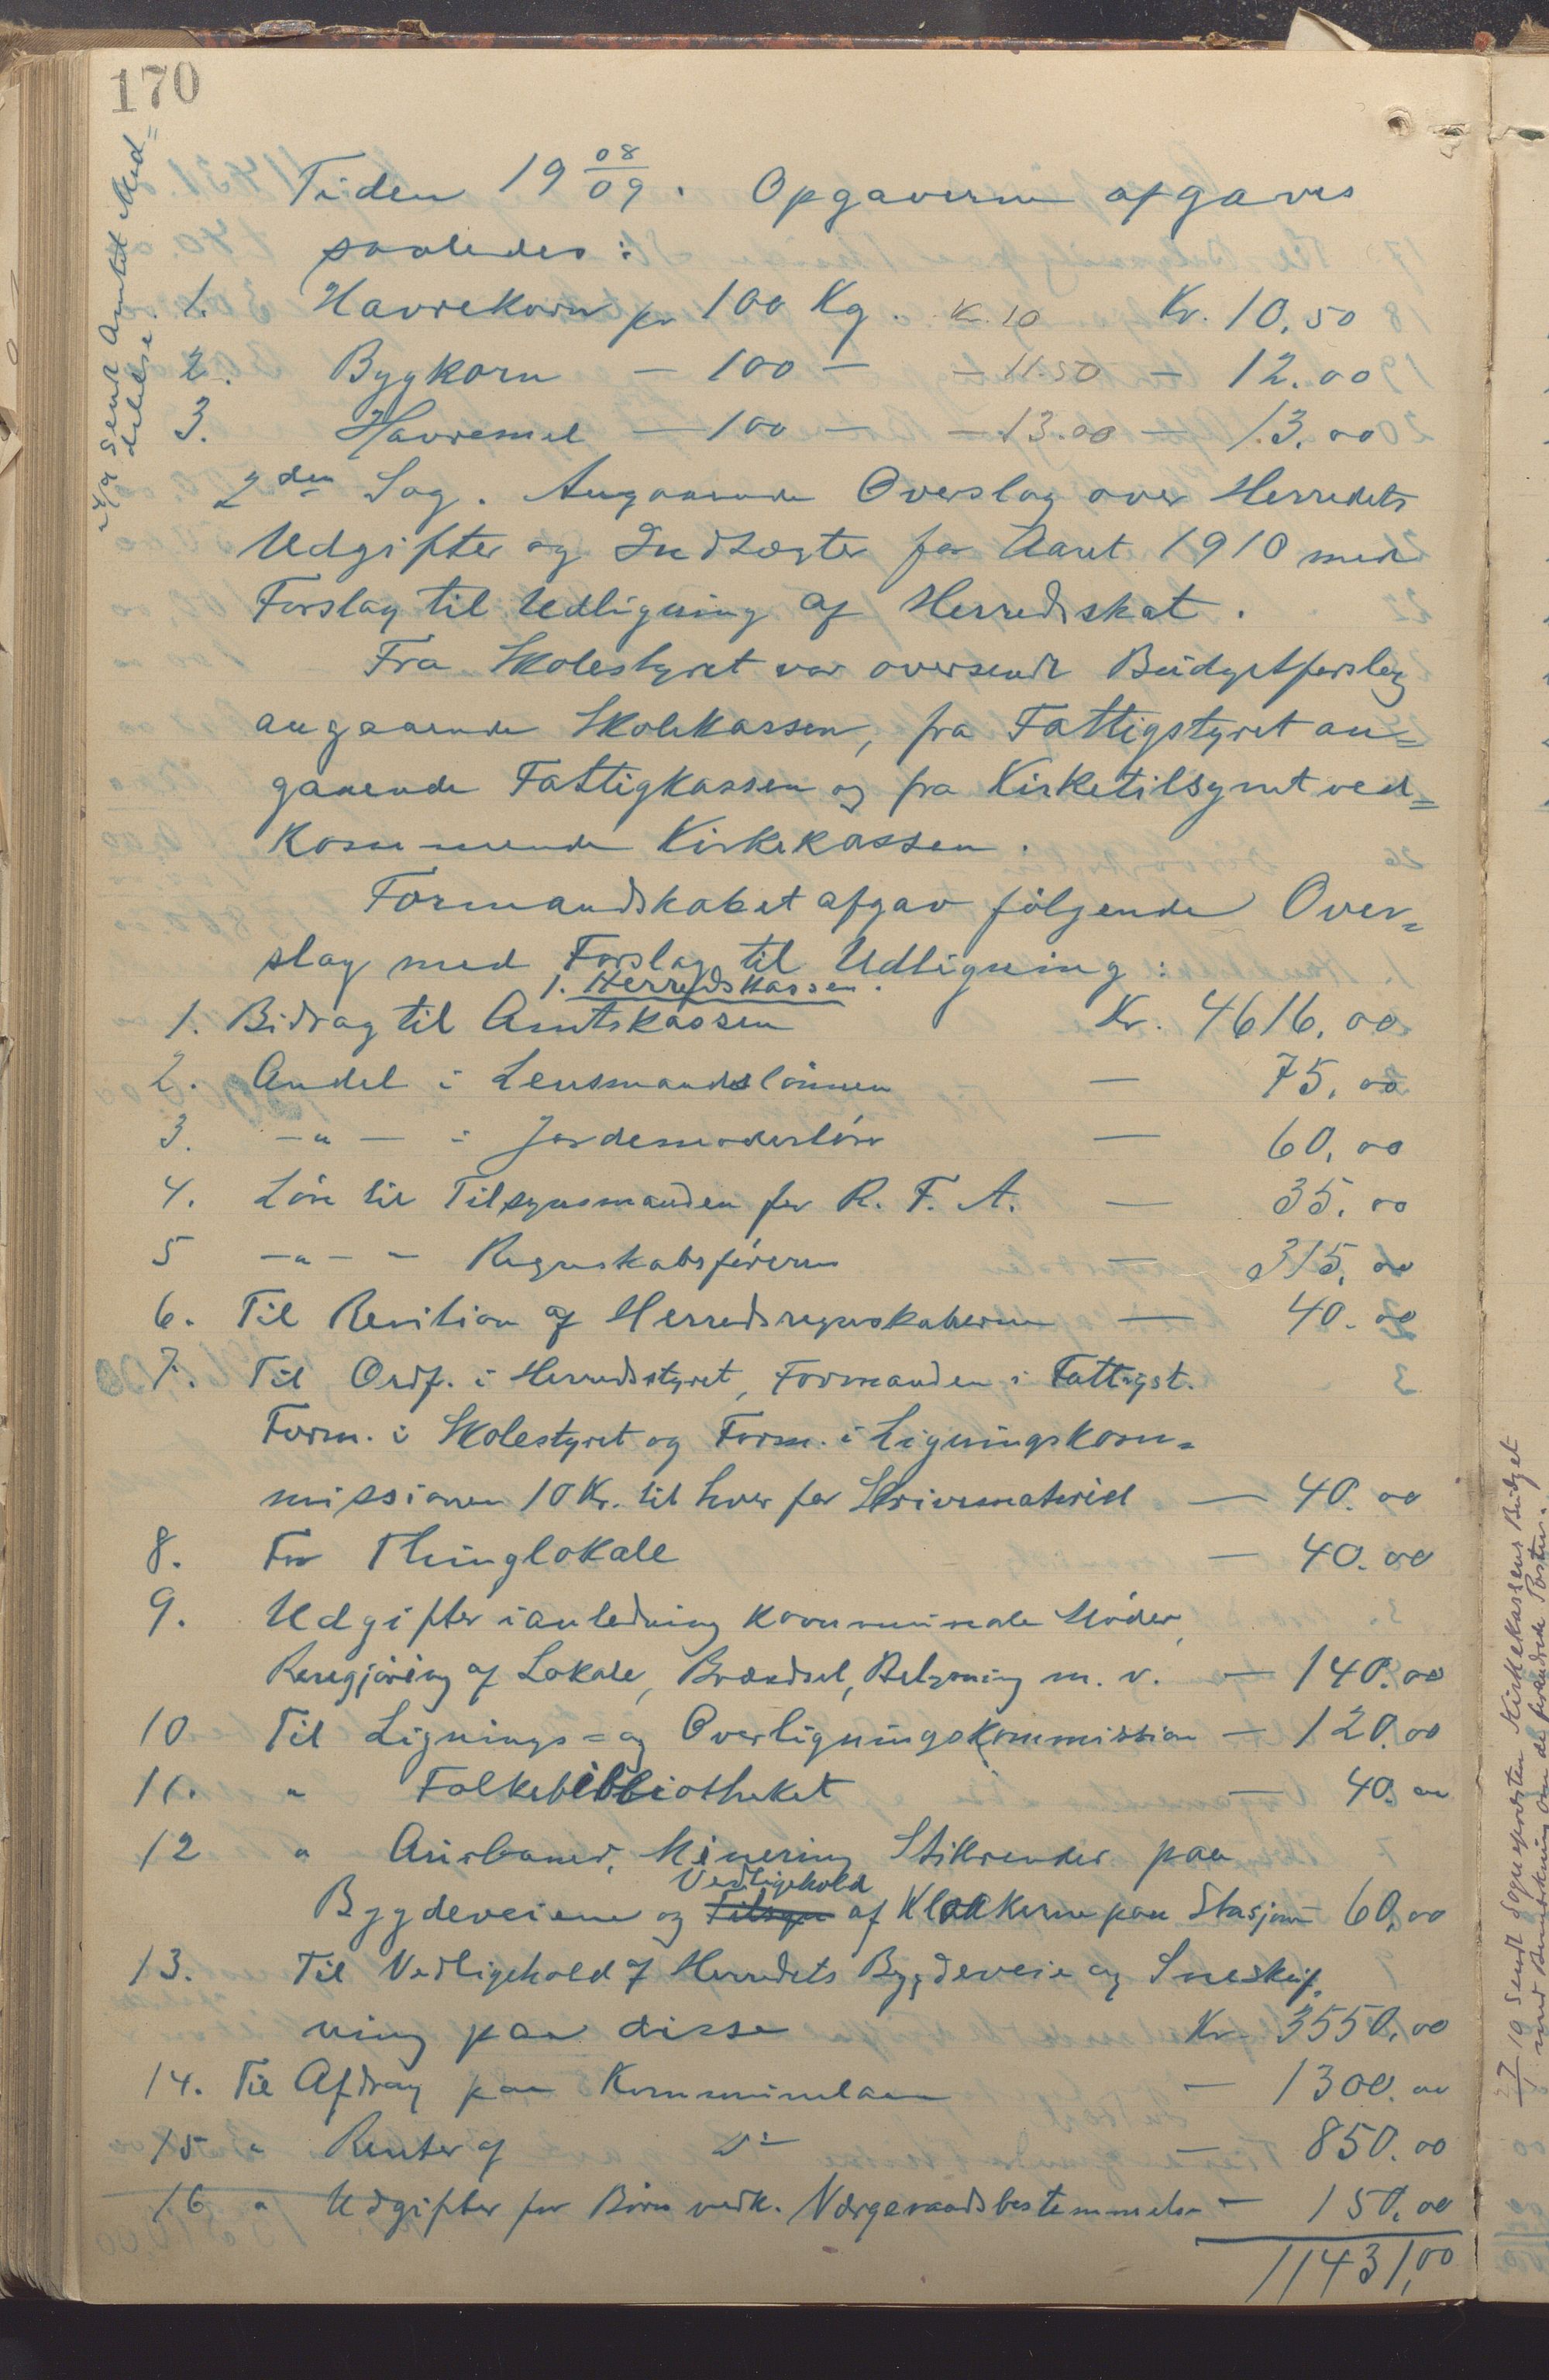 170
Tiden 19 08/09. Opgaverne afgaves
saaledes:
1. Havrekorn pr 100 Kg. K. 10 Kr. 10,50
2. Bygkorn — 100 — — 11.50 — 12.00
3. Havremel — 100 — — 13.00 — 13.00
2den Sag. Angaaende Overslag over Herredets
Udgifter og Indtægter for Aaret 1910 med
Forslag til Udligning af Herredsskat.
Fra Skolestyret var oversendt Budgetforslag
angaaende Skolekassen, fra Fattigstyret an=
gaaende Fattigkassen og fra Kirketilsynet ved=
kommende Kirkekassen.
Formandskabet afgav følgende Over=
slag med Forslag til Udligning:
1. Herredskassen.
1. Bidrag til Amtskassen Kr. 4616,00
2. Andel i Lensmandslønnen — 75,00
3. —"— i Jordemoderløn — 60,00
4. Løn til Tilsynsmanden for R. F. A. — 35,00
5 —"— - Regnskabsføreren — 315,00
6. Til Revition af Herredsregnskaberne — 40.00
7. Til Ordf. i Herredsstyret, Formanden i Fattigst.
Form. i Skolestyret og Form. i Ligningskom=
missionen 10 Kr. til hver for Skrivematriel — 40.00
8. For Thinglokale — 40.00
9. Udgifter ianledning kommunale Møder,
Rengjøring af Lokale, Brændsel, Belysning m. v. — 140.00
10 Til Lignings= og Overligningskommission — 120.00
11. " Folkebibliotheket — 40.00
12 " Minering Stikrender paa
Bygdeveiene og Tilsyn Vedligehold af Kloakerne paa Stasjon 60,00
13. Til Vedligehold af Herredets Bygdeveie og Sneskuf
ning paa disse Kr. 3550,00
14. Til Afdrag paa Kommunelaan — 1300.00
15 " Renter af Do — 850.00
16 " Udgifter for Børn vedk. Værgeraadsbestemmelse — 150.00
11431,00
Sendt Amtet Med=
delelse
27/1 10 Sendt Sognepresten Kirkekassens Budget
med Bemerkning om de forandrede Poster.